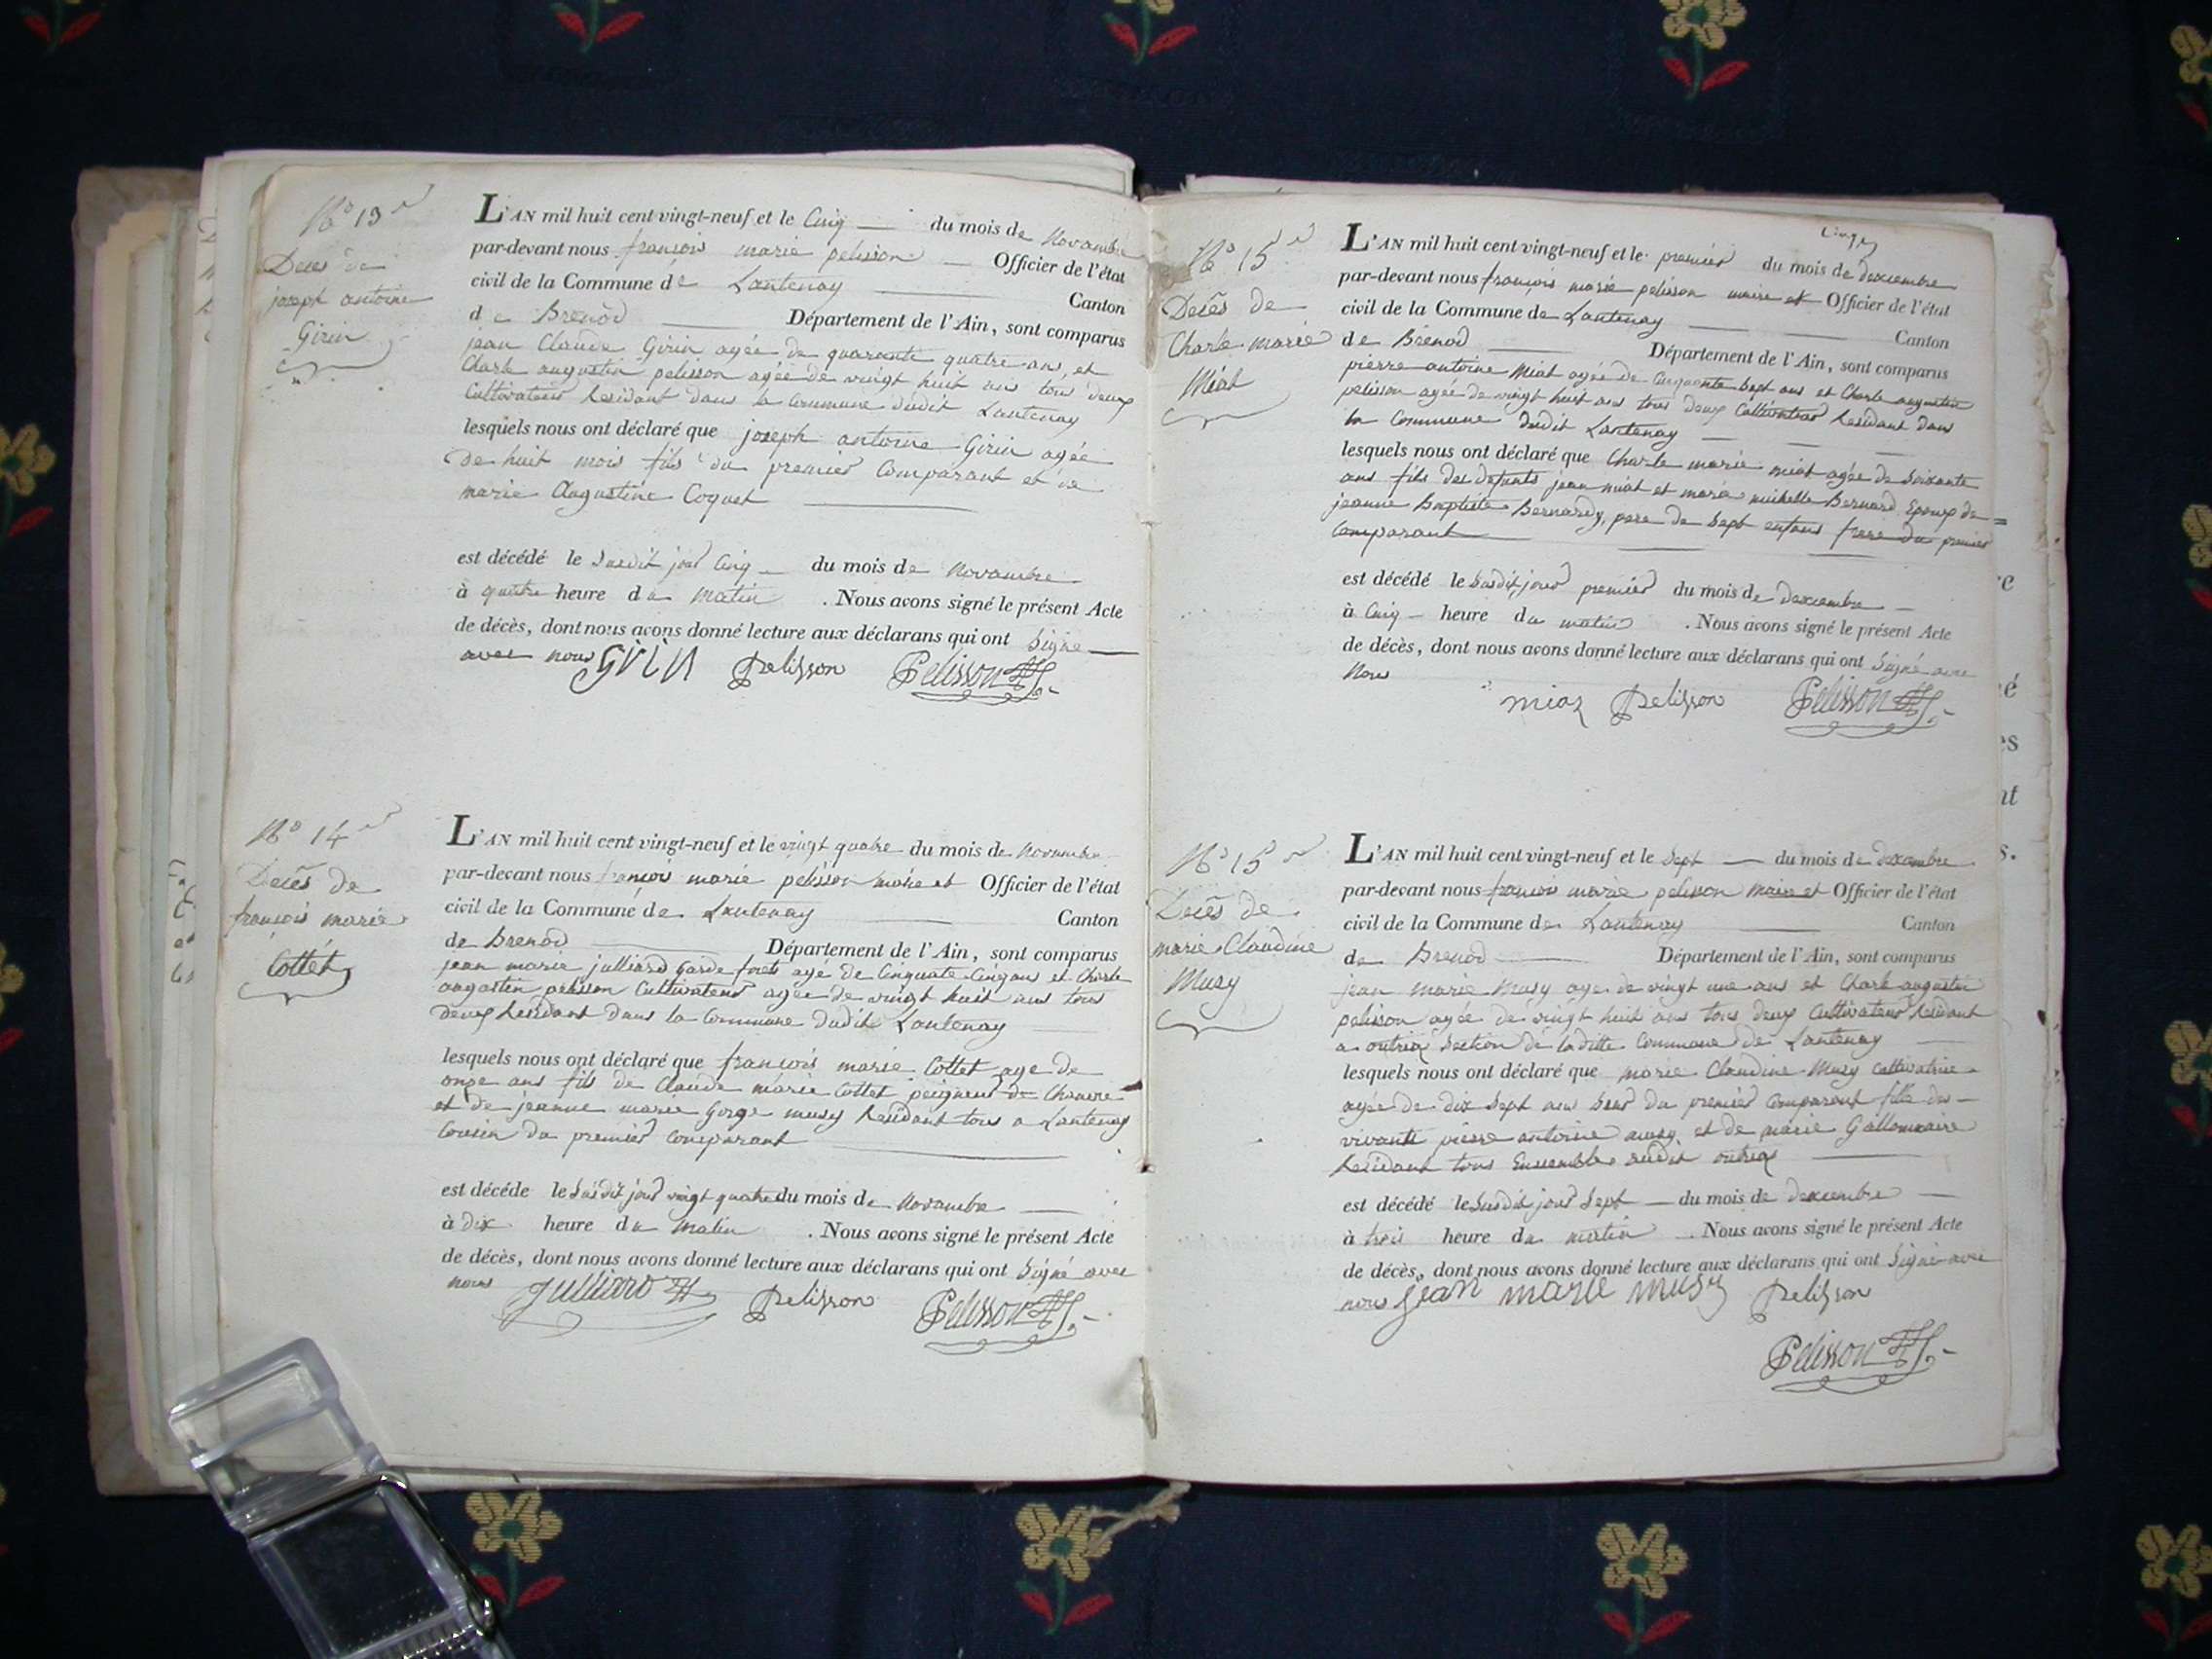 N° 13
Deces de
joseph antoine
Girin
L'AN mil huit cent vingt-neuf et le Cinq du mois de Novambre
par-devant nous françois marie pelisson Officier de l'état
civil de la Commune de Lantenay Canton
de Brenod Département de l'Ain, sont comparus
jean Claude Girin agée de quarante quatre ans, et
Charle augustin pelisson agée de vingt huit ans tous deux
Cultivateur Residant dans la Commune dudit Lantenay
lesquels nous ont déclaré que joseph antoine Girin agée
de huit mois fils du premier Comparant et de
marie Augustine Coquet
est décédé le Susdit jour Cinq du mois de Novambre
à quatre heure du matin . Nous avons signé le présent Acte
de décès, dont nous avons donné lecture aux déclarans qui ont Signé
avec nous Girin Pelisson Pelisson
N° 14
Decès de
françois marie
Cottet
L'AN mil huit cent vingt-neuf et le vingt quatre du mois de Novambre
par-devant nous françois marie pelisson maire et Officier de l'état
civil de la Commune de Lantenay Canton
de Brenod Département de l'Ain, sont comparus
jean marie julliard Garde forêt agé de Cinquate Cinq ans et Charle
augustin pelisson Cultivateur agée de vingt huit ans tous
deux Residant dans la Commune dudit Lantenay
lesquels nous ont déclaré que françois marie Cottet age de
onze ans fils de Claude marie Cottet peigneur de Chanvre
et de jeanne marie Gorge musy Residant tous a Lantenay
Cousin du premier Comparant
est décédé le Susdit jour vingt quatre du mois de Novambre
à dix heure du matin . Nous avons signé le présent Acte
de décès, dont nous avons donné lecture aux déclarans qui ont Signé avec
nous Julliard Pelisson Pelisson
N° 15
Decès de
Charle marie
Miat
L'AN mil huit cent vingt-neuf et le premier du mois de dexcembre
par-devant nous françois marie pelisson maire et Officier de l'état
civil de la Commune de Lantenay Canton
de Brenod Département de l'Ain, sont comparus
pierre antoine Miat agée de Cinquante Sept ans et Charle augustin
pelisson agée de vingt huit ans tous deux Cultivateur Residant dans
la Commune dudit Lantenay
lesquels nous ont déclaré que Charle marie miat agée de Soixante
ans fils des defunts jean miat et marie michelle Bernard Epoux de
jeanne Baptiste Bernardy, pere de Sept enfans frere du premier
Comparant
est décédé le Susdit jour premier du mois de dexcembre
à Cinq heure du matin . Nous avons signé le présent Acte
de décès, dont nous avons donné lecture aux déclarans qui ont Signé avec
Nous
miaz Pelisson Pelisson
N° 15
Decès de
marie Claudine
Musy
L'AN mil huit cent vingt-neuf et le Sept du mois de dexcembre
par-devant nous françois marie pelisson maire et Officier de l'état
civil de la Commune de Lantenay Canton
de Brenod Département de l'Ain, sont comparus
jean marie Musy age de vingt une ans et Charle augustin
pelisson agée de vingt huit ans tous deux Cultivateur Residant
a outriaz Section de laditte Commune de Lantenay
lesquels nous ont déclaré que marie Claudine Musy Cultivatrice
agée de dix Sept ans Seur du premier Comparant fille des
vivants pierre antoine musy et de marie
Residant tous Ensembles audit outriaz
est décédé le Susdit jour Sept du mois de dexcembre
à trois heure du matin . Nous avons signé le présent Acte
de décès, dont nous avons donné lecture aux déclarans qui ont Signé avec
nous Jean marie musy Pelisson
Pelisson